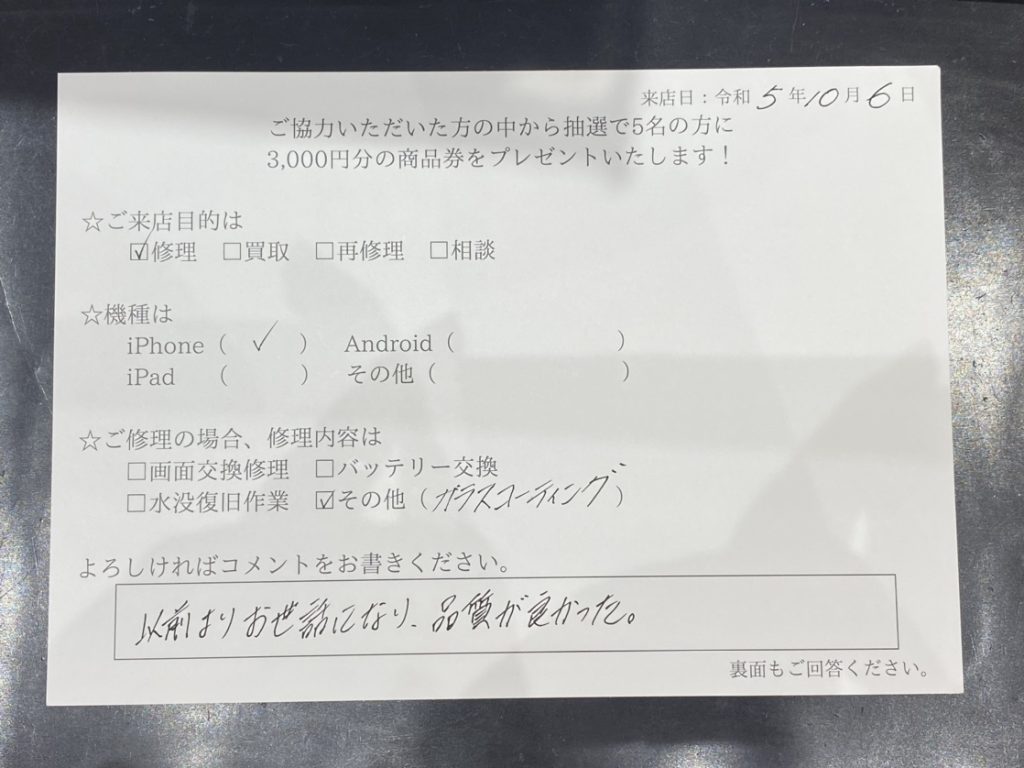 来店日：令和 5 年 10 月 6 日
ご協力いただいた方の中から抽選で5名の方に
3,000円分の商品券をプレゼントいたします！
☆ご来店目的は
☑修理 □買取 □再修理 □相談
☆機種は
iPhone（ ✓ ） Android（ ）
iPad （ ） その他（ ）
☆ご修理の場合、修理内容は
□画面交換修理 □バッテリー交換
□水没復旧作業 ☑その他（ガラスコーティング）
よろしければコメントをお書きください。
以前よりお世話になり、品質が良かった。
裏面もご回答ください。